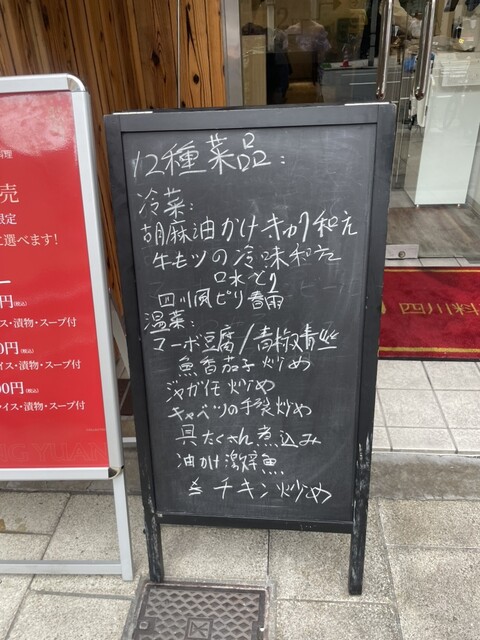 12種菜品:
冷菜:
胡麻油かけキカリ和え
牛モツの冷味和え
口水とり
四川風ピリ春雨
温菜:
マーボ豆腐/青椒青丝
魚香茄子炒め
ジャガイモ炒め
キャベツの手裂炒め
具たくさん煮込み
油かけ激辛魚
チキン炒め
料理
売
限定
に選べます!
0円(税込)
イス・漬物・スープ付
0円(税込)
イス・漬物・スープ付
00円(税込)
ライス・漬物・スープ付
四川料